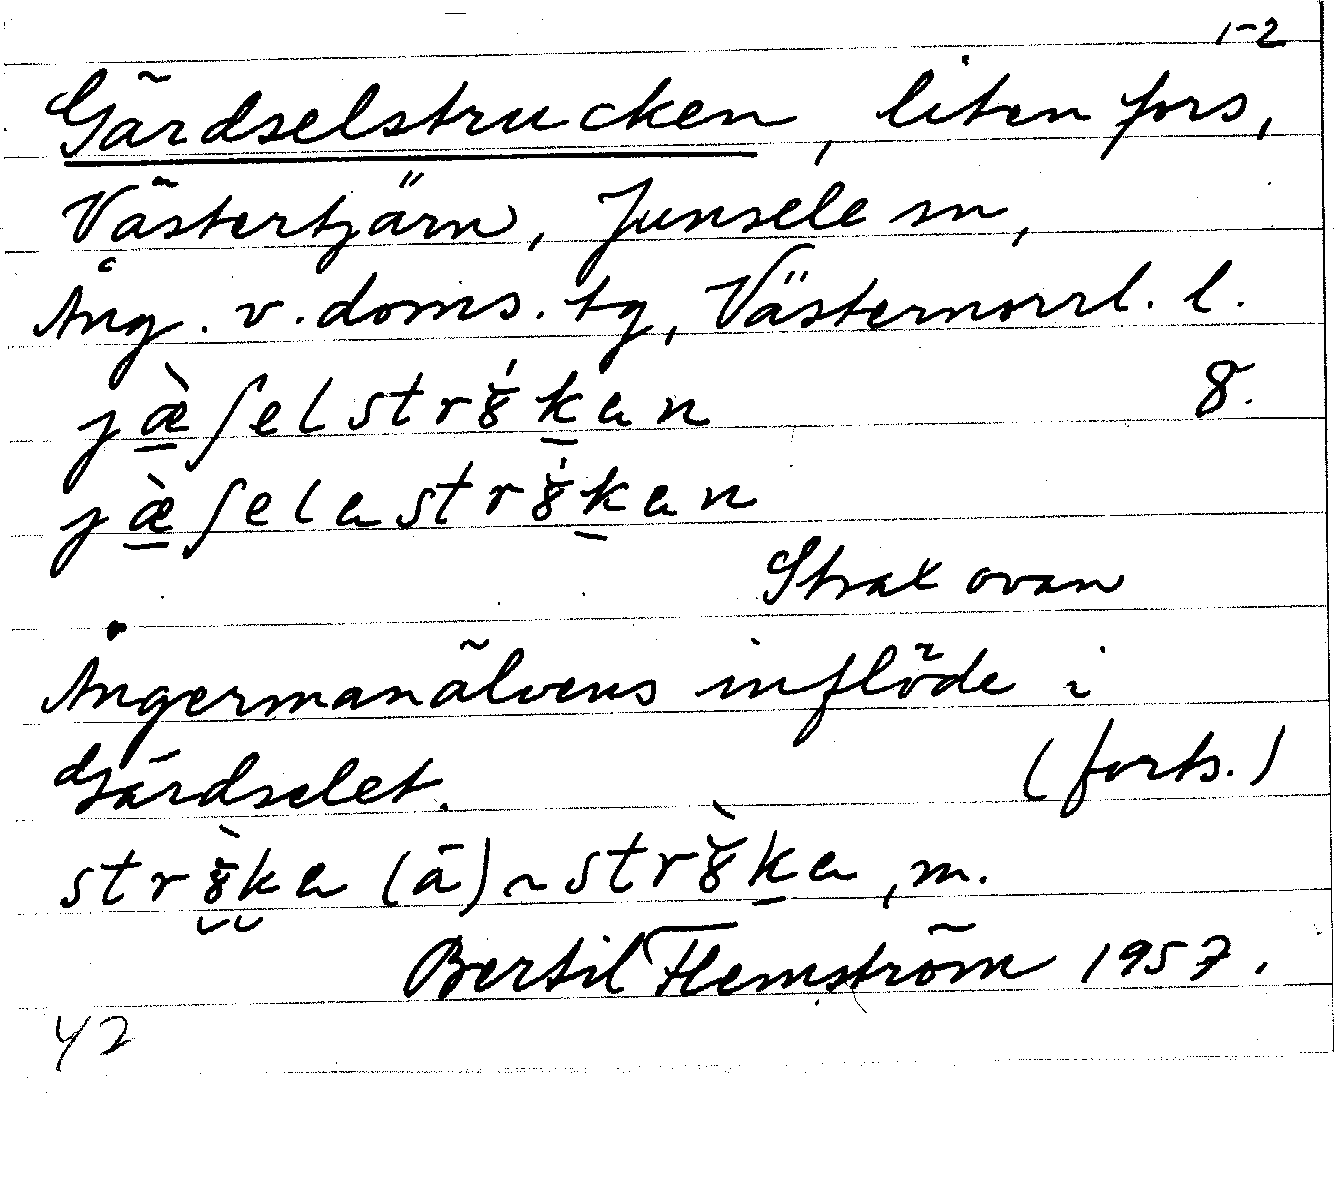 1-2
Gärdselstrucken, liten fors,
Västertjärn, Junsele sn,
Ång. v. doms. tg, Västernorrl. l.
jæ̀ʃelstrȣ́ken 8.
jæ̀ʃelastrȣ́ken
Strax ovan
Ångermanälvens inflöde i
Gärdselet. (forts.)
strȣ̀ka (ā) ~ strȣ̀ka, m.
Bertil Flemström 1957.
42